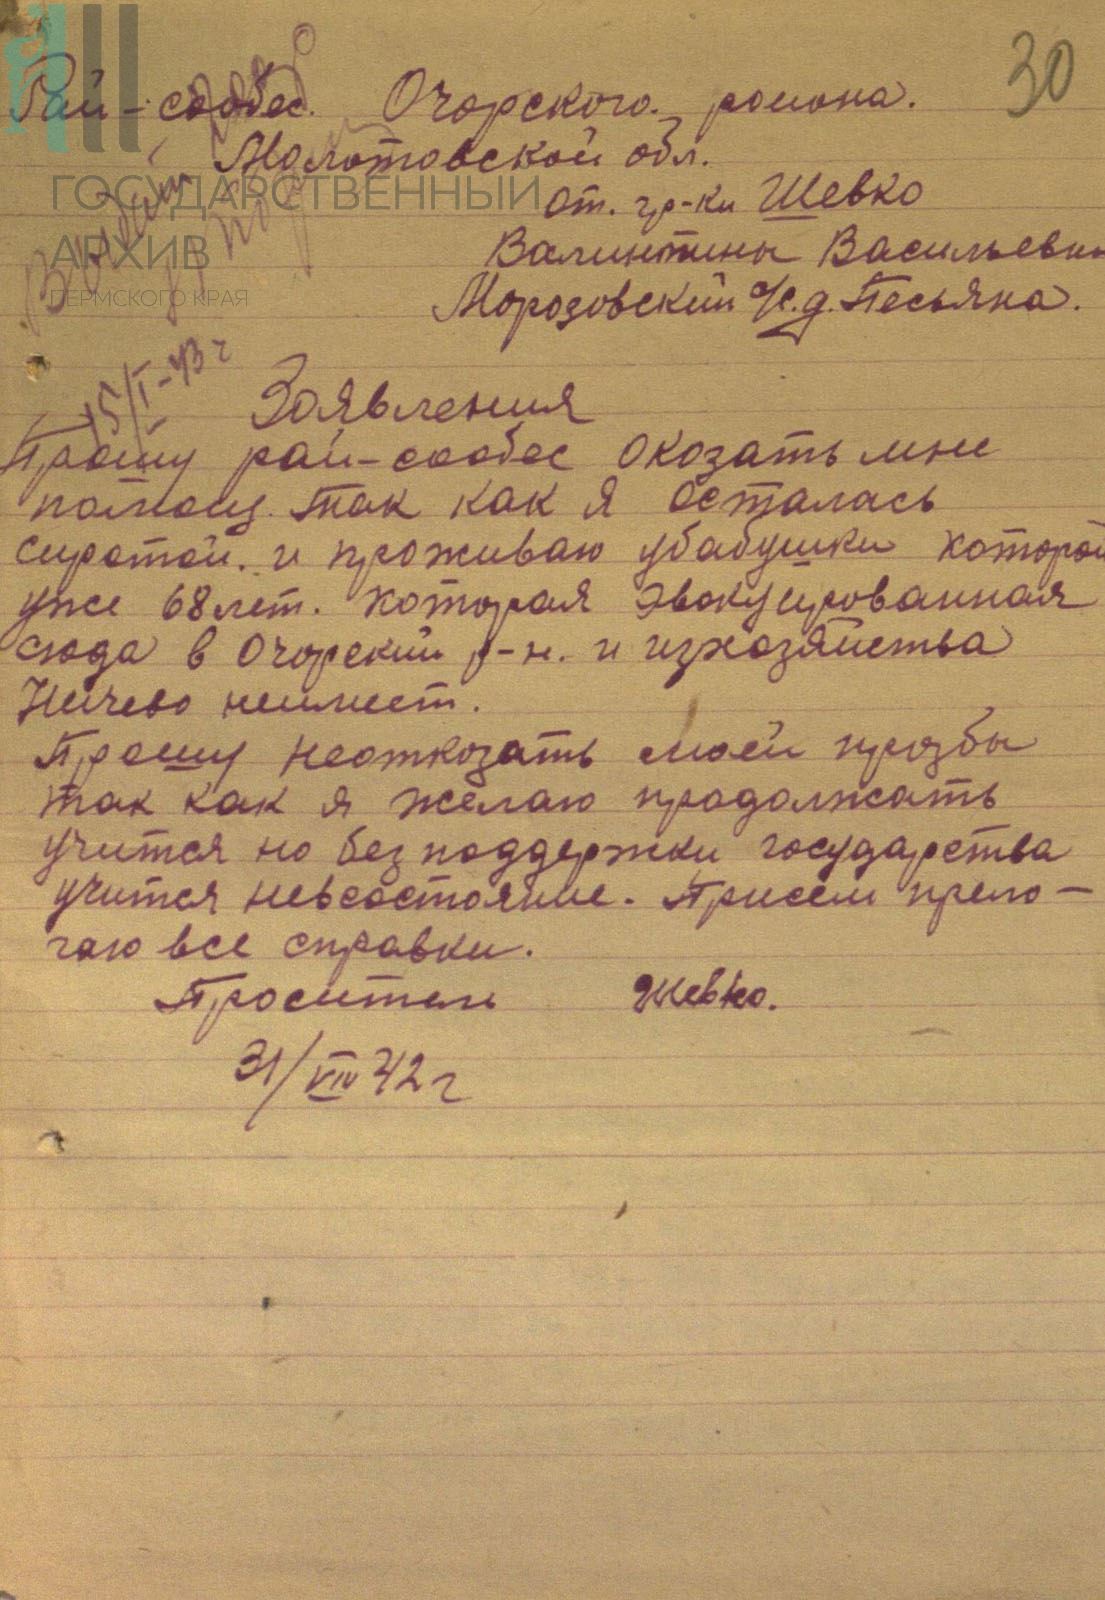 30
Рай-сообес. Очорского. роиона.
Молотовской обл.
ГОСУДАРСТВЕННЫЙ
от. гр-ки Шевко
АРХИВ
Валинтины Васильевны
ПЕРМСКОГО КРАЯ
Морозовский с/с. д. Песьянка.
15/I-43 г
Заявления
Прошу рай-сообес окозать мне
помощ. так как я осталась
сиротой. и проживаю убабушки которой
уже 68 лет. которая эвокуированная
сюда в Очорский р-н. и изхозяйства
Ничево неимеет.
Прошу неоткозать моей прозбы
так как я желаю продолжать
учится но без поддержки государства
учится невсостояние. Присем прело-
гаю все справки.
Проситель Шевко.
31/VIII 42 г